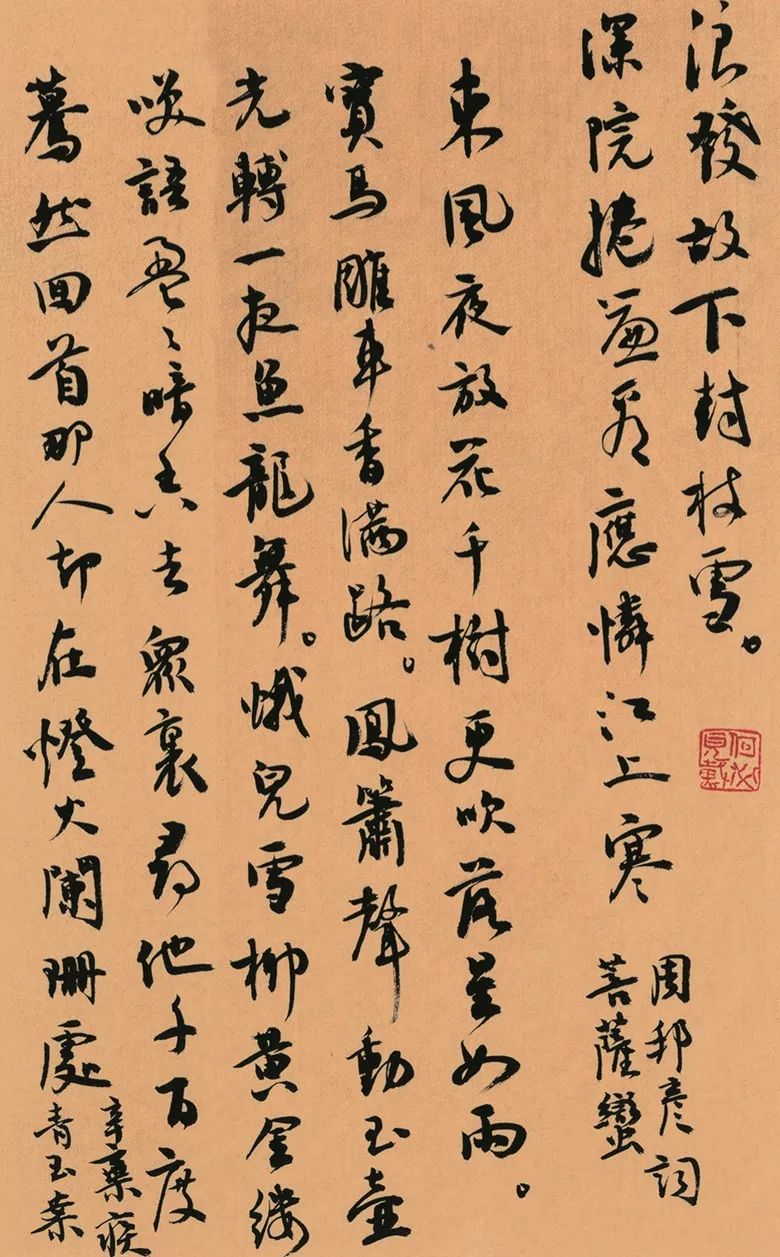 浪發故下封枝雪。
深院捲簾看應憐江上寒
周邦彥詞
菩薩蠻
東風夜放花千樹更吹落星如雨。
寶馬雕車香滿路。鳳簫聲動玉壺
光轉一夜魚龍舞。蛾兒雪柳黄金縷
咲語盈〻暗香去衆裏尋他千百度
驀然回首那人却在燈火闌珊處
辛棄疾
青玉案